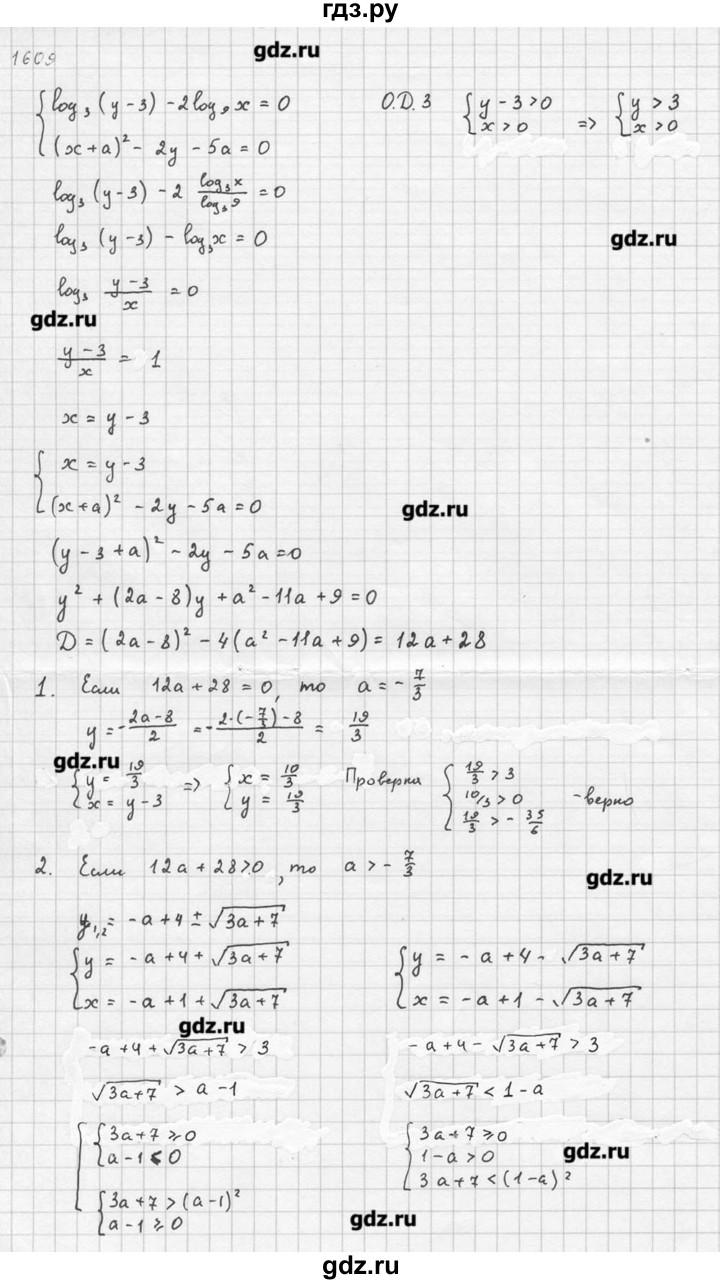 гдз.ру
gdz.ru
1609
{ log₃ (y-3) - 2log₉ x = 0    О.Д.З    { y-3>0    =>    { y > 3
{ (x+a)² - 2y - 5a = 0    { x>0    { x>0
log₃ (y-3) - 2 log₃x / log₃9 = 0
log₃ (y-3) - log₃x = 0
gdz.ru
log₃ (y-3)/x = 0
gdz.ru
(y-3)/x = 1
x = y - 3
{ x = y - 3
{ (x+a)² - 2y - 5a = 0
gdz.ru
(y - 3 + a)² - 2y - 5a = 0
y² + (2a - 8)y + a² - 11a + 9 = 0
D = (2a - 8)² - 4(a² - 11a + 9) = 12a + 28
1. Если 12a + 28 = 0, то a = - 7/3
y = - (2a-8)/2 = - (2·(-7/3) - 8)/2 = 19/3
gdz.ru
{ y = 19/3    =>    { x = 10/3    Проверка    { 19/3 > 3
{ x = y - 3    { y = 19/3    { 10/3 > 0    - верно
{ 19/3 > - 35/6
2. Если 12a + 28 > 0, то a > - 7/3
gdz.ru
y₁,₂ = -a + 4 ± √(3a+7)
{ y = -a + 4 + √(3a+7)    { y = -a + 4 - √(3a+7)
{ x = -a + 1 + √(3a+7)    { x = -a + 1 - √(3a+7)
gdz.ru
-a + 4 + √(3a+7) > 3    -a + 4 - √(3a+7) > 3
√(3a+7) > a - 1    √(3a+7) < 1 - a
[ { 3a+7 ≥ 0    { 3a+7 ≥ 0
{ a - 1 < 0    { 1 - a > 0
gdz.ru
{ 3a+7 > (a-1)²    { 3a+7 < (1-a)²
{ a - 1 ≥ 0
gdz.ru
gdz.ru